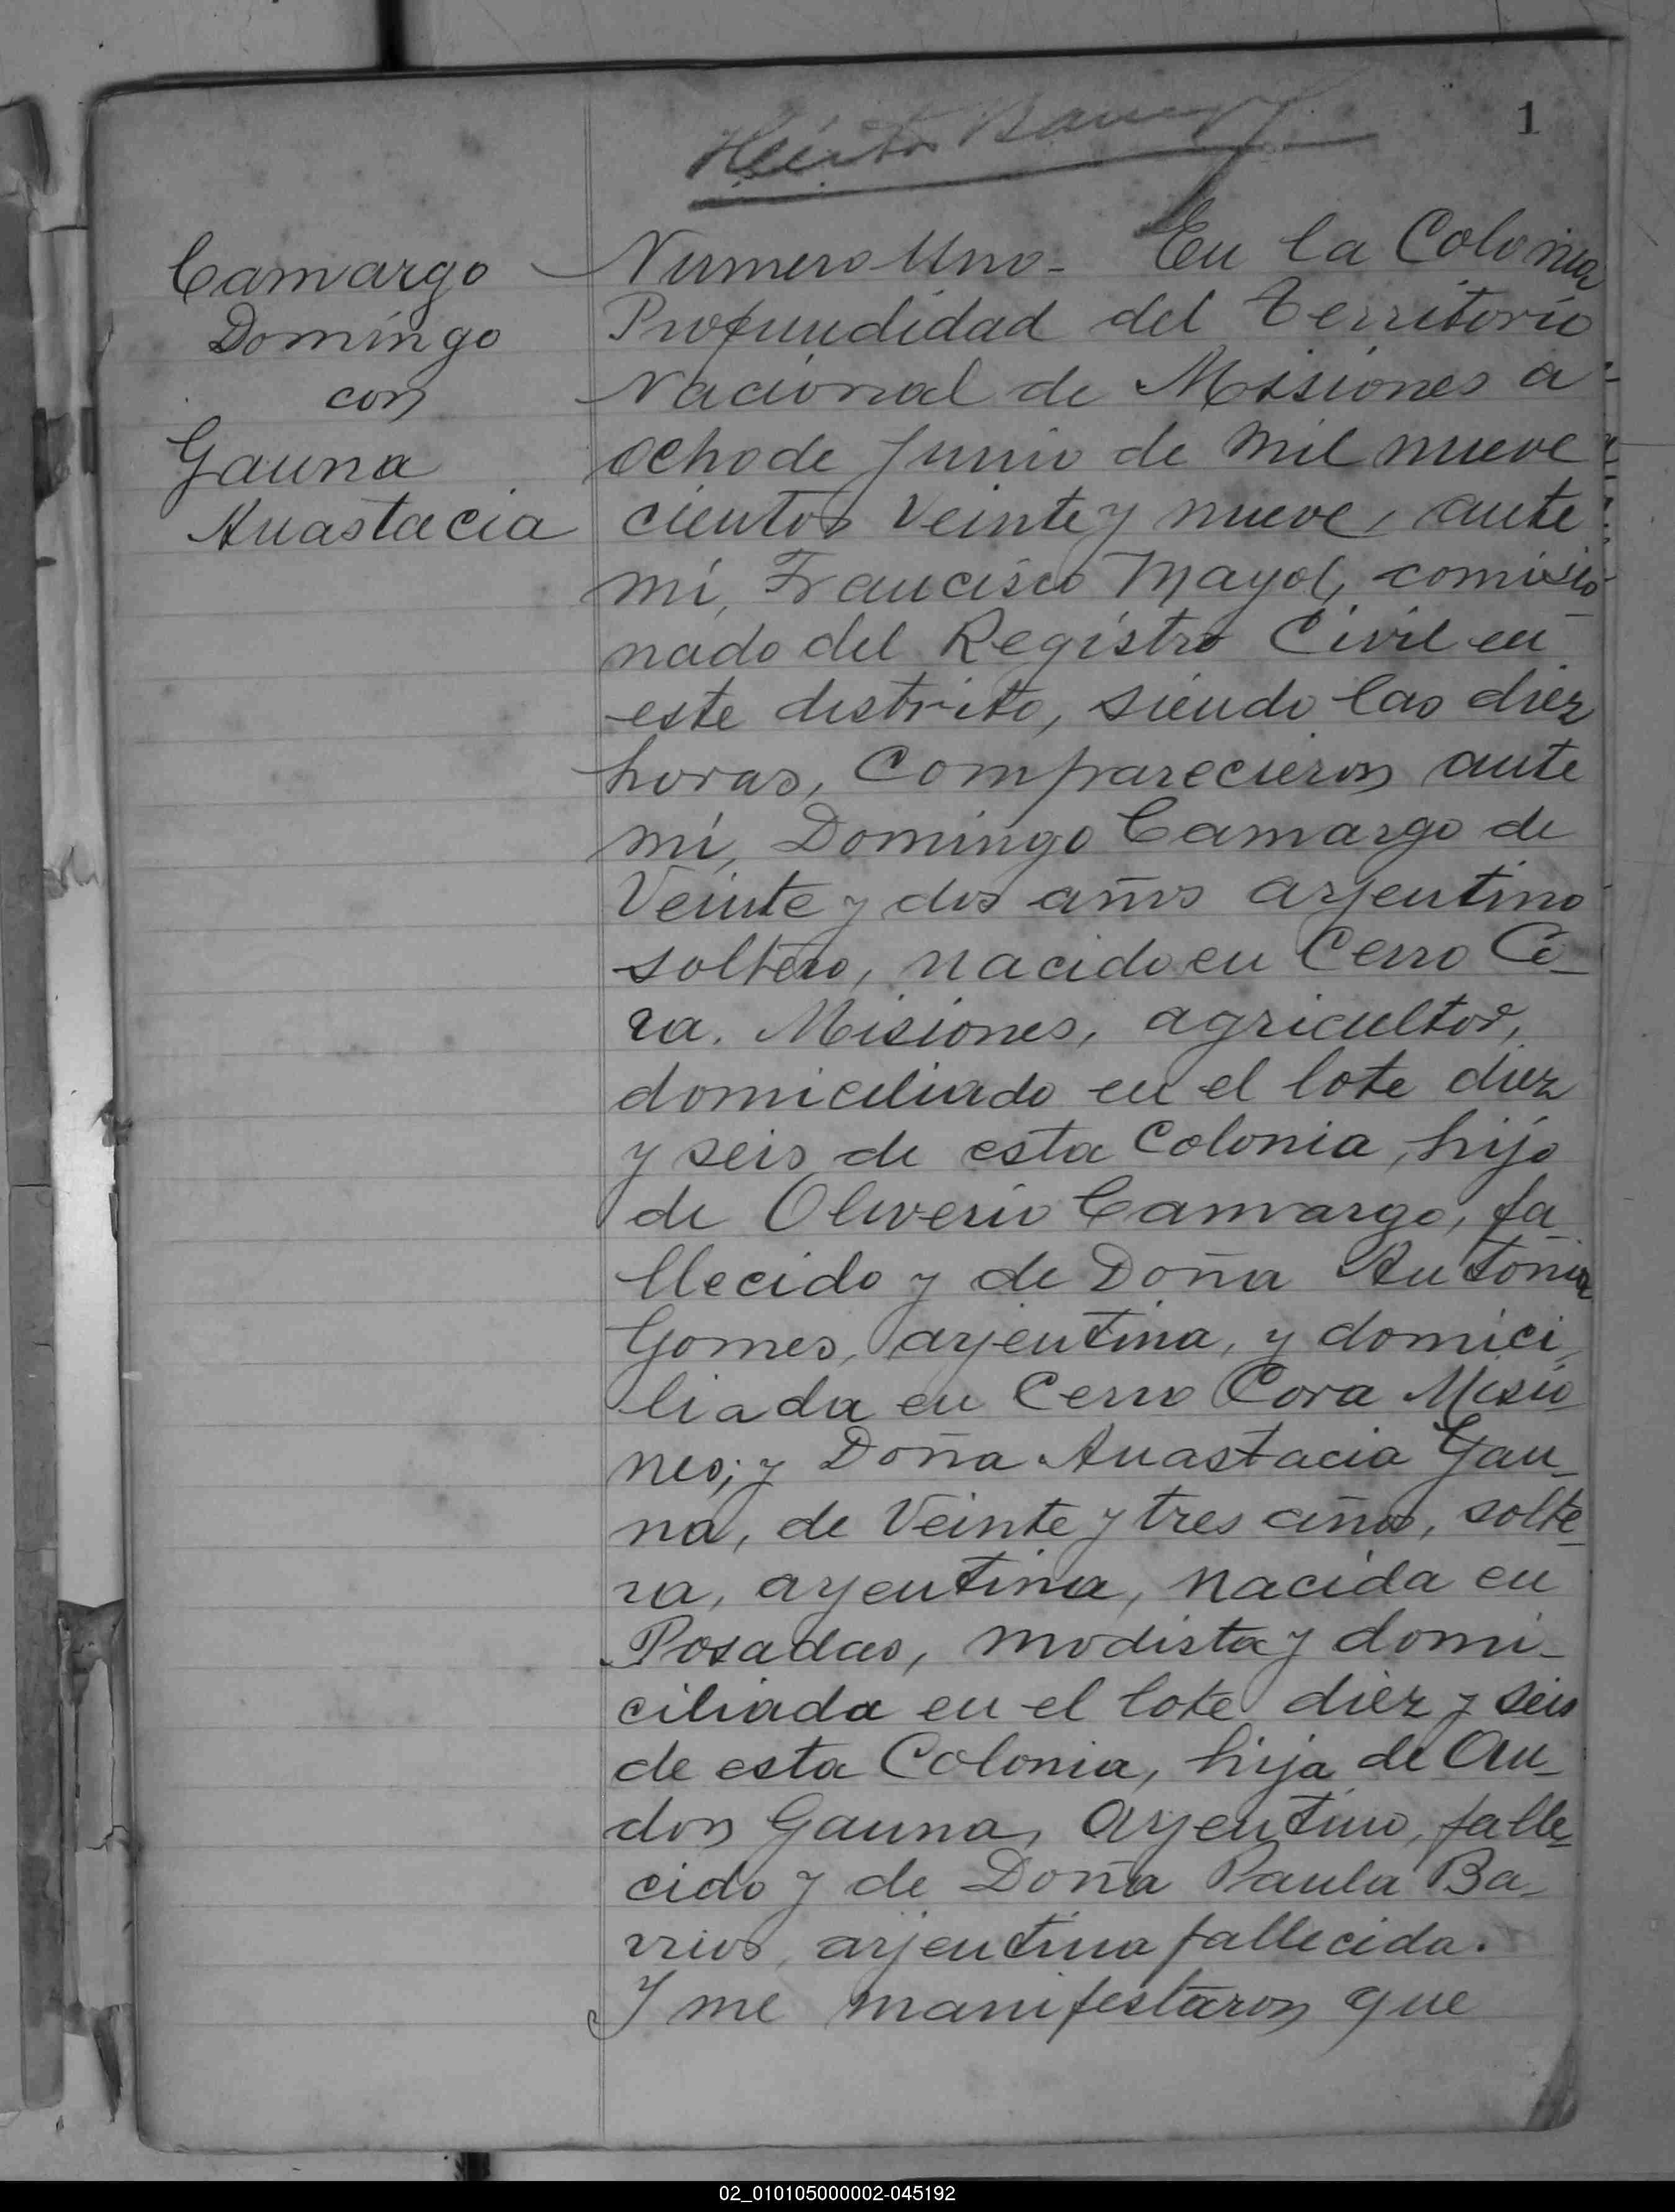 1
Camargo
Domingo
con
Gauna
Anastacia
Numero Uno- En la Colonia
Profundidad del Territorio
Nacional de Misiones a
ocho de Junio de mil nueve
cientos veinte y nueve, ante
mi, Francisco Mayol, comisio
nado del Registro Civil en
este distrito, siendo las diez
horas, Comparecieron ante
mi, Domingo Camargo de
Veinte y dos años arjentino
soltero, nacido en Cerro Co-
ra. Misiones, agricultor,
domiciliado en el lote diez
y seis de esta Colonia, hijo
de Oliverio Camargo, fa
llecido y de Doña Antonia
Gomes, arjentina, y domici
liada en Cerro Cora Misio
nes; y Doña Anastacia Gau-
na, de Veinte y tres años, solte-
ra, arjentina, nacida en
Posadas, modista y domi-
ciliada en el lote diez y seis
de esta Colonia, hija de
Gauna, Arjentino, falle-
cido y de Doña Paula Ba-
rrios, arjentina fallecida.
Y me manifestaron que
02_010105000002-045192